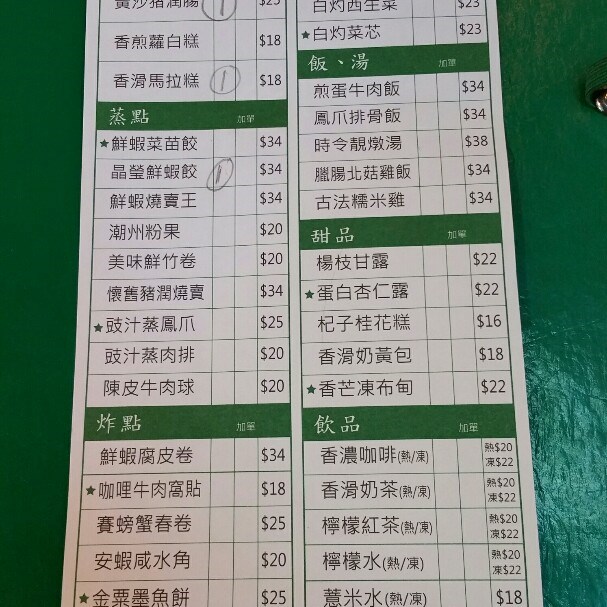 黃沙豬潤腸 1 $25
香煎蘿白糕 $18
香滑馬拉糕 1 $18
蒸點 加單
★鮮蝦菜苗餃 $34
晶瑩鮮蝦餃 1 $34
鮮蝦燒賣王 $34
潮州粉果 $20
美味鮮竹卷 $20
懷舊豬潤燒賣 $34
★豉汁蒸鳳爪 $25
豉汁蒸肉排 $20
陳皮牛肉球 $20
炸點 加單
鮮蝦腐皮卷 $34
★咖哩牛肉窩貼 $18
賽螃蟹春卷 $25
安蝦咸水角 $20
★金粟墨魚餅 $25
白灼西生菜 $23
★白灼菜芯 $23
飯、湯 加單
煎蛋牛肉飯 $34
鳳爪排骨飯 $34
時令靚燉湯 $38
臘腸北菇雞飯 $34
古法糯米雞 $34
甜品 加單
楊枝甘露 $22
★蛋白杏仁露 $22
杞子桂花糕 $16
香滑奶黃包 $18
★香芒凍布甸 $22
飲品 加單
香濃咖啡(熱/凍) 熱$20 凍$22
香滑奶茶(熱/凍) 熱$20 凍$22
檸檬紅茶(熱/凍) 熱$20 凍$22
檸檬水(熱/凍) 熱$20 凍$22
薏米水(熱/凍) $18